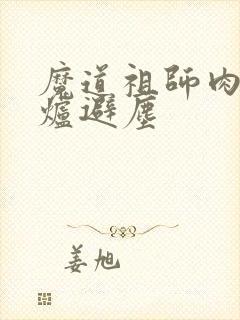 魔道祖師肉
爐避塵
姜旭